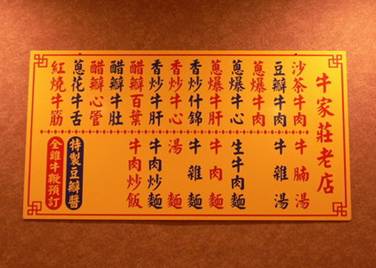 牛家莊老店
沙茶牛肉
豆瓣牛肉
蔥爆牛肉
蔥爆牛心
蔥爆牛肝
香炒什錦
香炒牛心
香炒牛肝
醋瓣百葉
醋瓣牛肚
醋瓣心管
蔥花牛舌
紅燒牛筋
牛腩湯
牛雜湯
生牛肉麵
牛肉麵
牛雜麵
湯麵
牛肉炒麵
牛肉炒飯
特製豆瓣醬
全雞牛鞭預訂